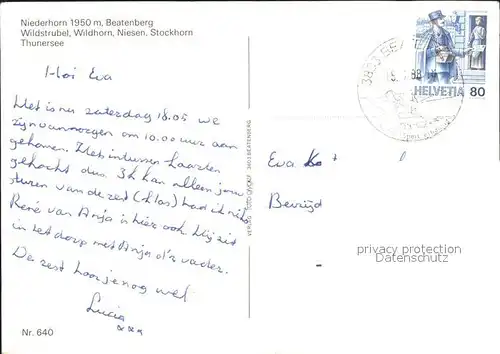 Niederhorn 1950 m, Beatenberg
Wildstrubel, Wildhorn, Niesen, Stockhorn
Thunersee
Hoi Eva
Het is nu zaterdag 18.05 we
zijn vanmorgen om 10.00 uur aan
gekomen. Heb intussen kaarten
gekocht dus. Ik kan alleen jou
sturen van de rest (klas) had ik niks
René van Anja is hier ook. Hij zit
in het dorp met Anja d'r vader.
De rest hoor je nog wel
Lucia
xxx
Nr. 640
3803 BEATENBERG
HELVETIA 80
3803
88
Eva
Bevrijd
privacy protection
Datenschutz